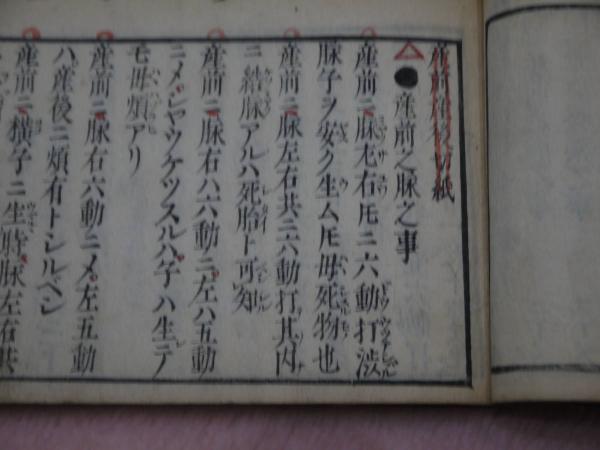 産前産後切紙
●産前之脉之事
産前ニ脉左右圧ニ六動打渋
脉子ヲ安ク生ム圧母死物也
産前ニ脉左右共ニ六動打其内
ニ結脉アルハ死胎ト可知
産前ニ脉右ハ六動ニ左ハ五動
ニメシヤウケツスルハ子ハ生テ
モ母煩アリ
産前ニ脉右六動ニメ左五動
ハ産後ニ煩有トシルベシ
産前ニ横子ニ生時脉左右共